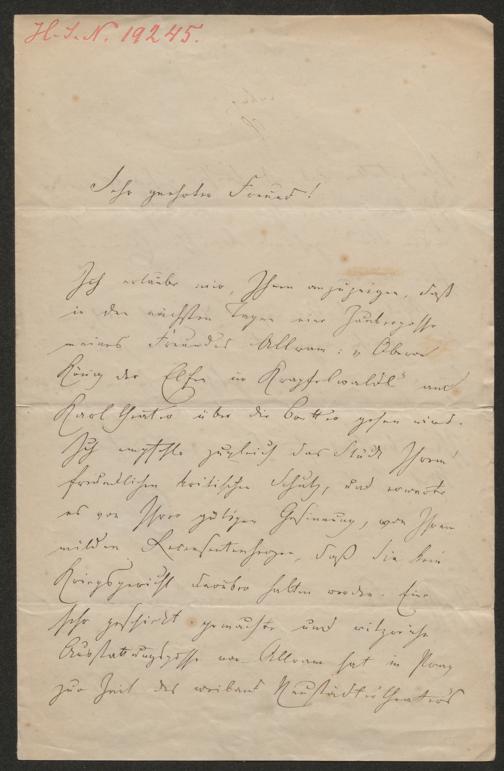 H. I. N. 19245.
Sehr geehrter Freund!
Ich erlaube mir, Ihnen anzuzeigen, daß
in den nächsten Tagen eine Zauberposse
meines Freundes Allram: „Oberon
König der Elfen im Krapfelwaldl" am
Karltheater über die Bretter gehen wird.
Ich empfehle zugleich das Stück Ihrem
freundlichen kritischen Schutz, und erwarte
es von Ihrer gütigen Gesinnung, von Ihrem
milden Recensentenherzen, daß Sie kein
Kriegsgericht darüber halten werden. Eine
sehr geschickt gemachte und witzreiche
Ausstattungsposse von Allram hat in Prag
zur Zeit des weiland Neustädtertheaters